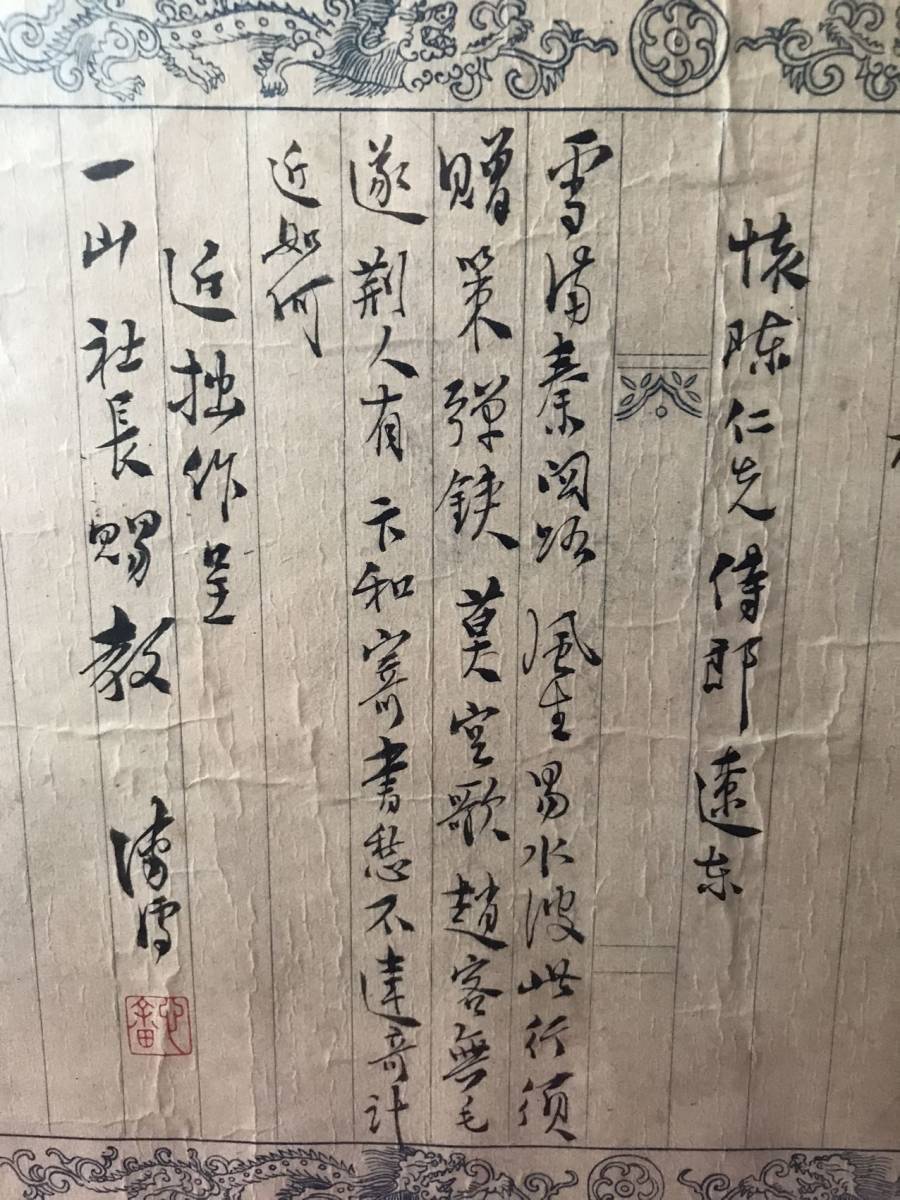 懷陳仁先侍郎遼東
雪滿秦關路風生易水波此行須
贈策彈鋏莫空歌趙客無毛
遂荊人有卞和寄書愁不達奇計
近如何
近拙作呈
一山社長賜教
溥儒
心畬